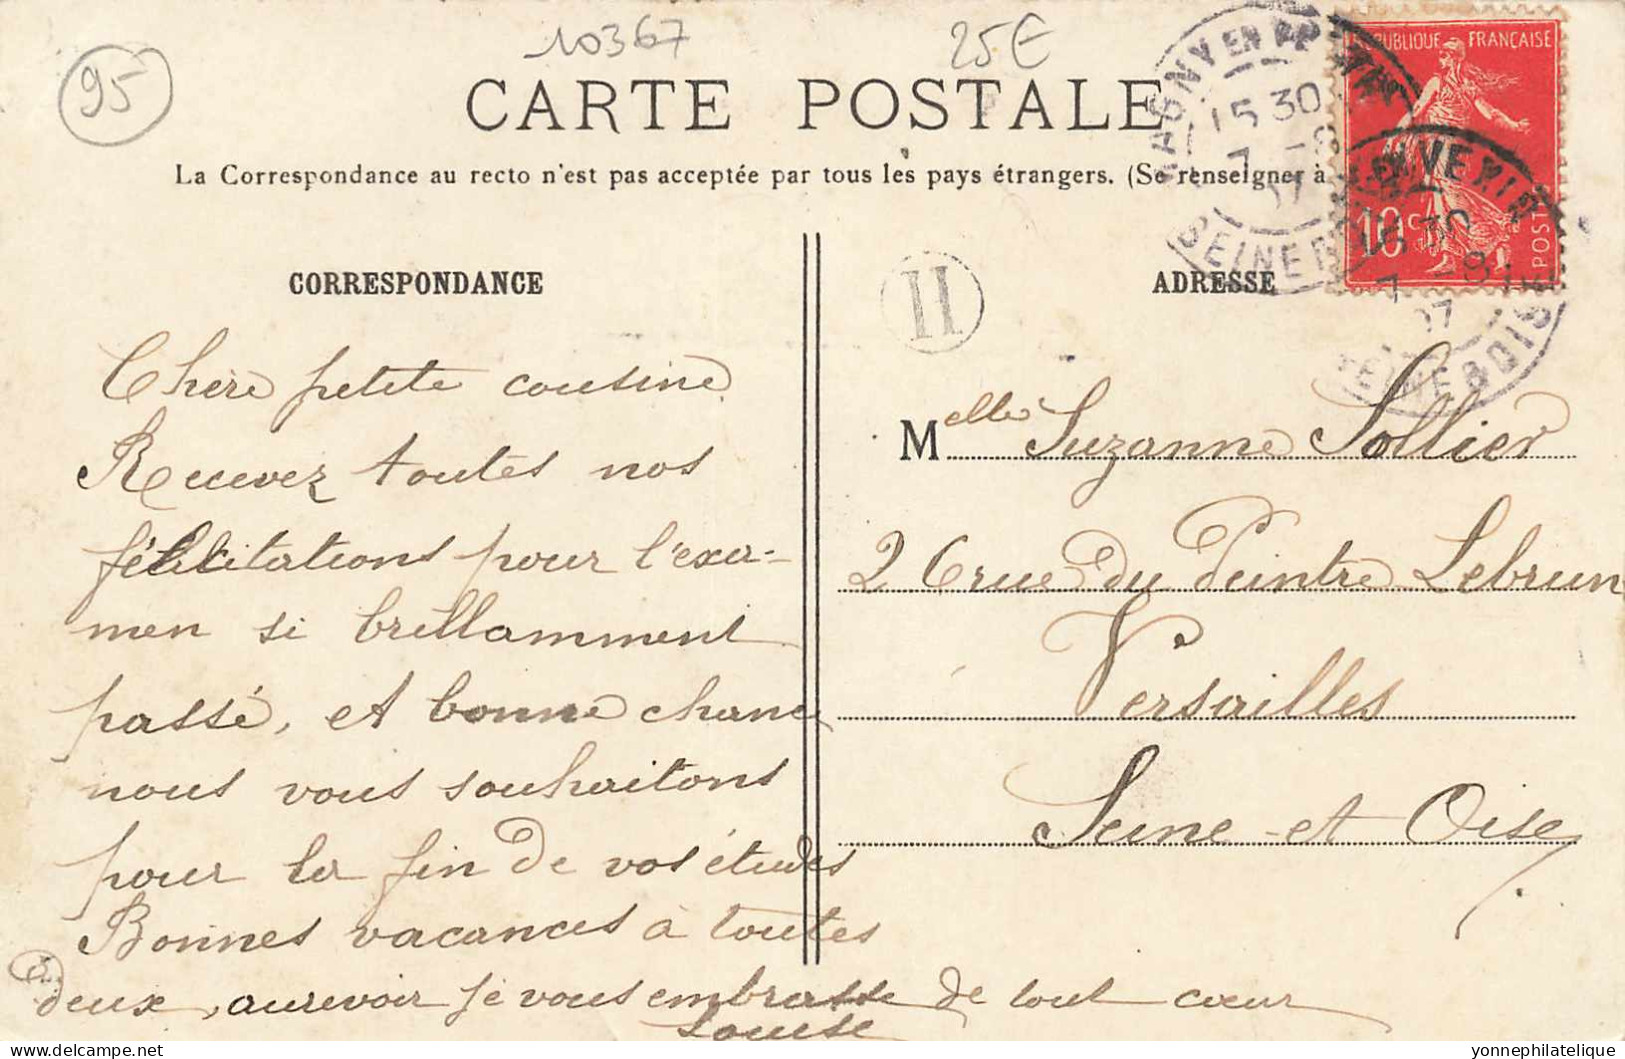 95
10367
25E
CARTE POSTALE
La Correspondance au recto n'est pas acceptée par tous les pays étrangers. (Se renseigner à
RÉPUBLIQUE FRANÇAISE
10 c
POSTES
MAGNY EN VEXIN
15 30
7 -8
07
SEINE ET OISE
EN VEXIN
16 30
7 -8
07
SEINE & OISE
H
CORRESPONDANCE
ADRESSE
Chère petite cousine
Recevez toutes nos
félicitations pour l'exa-
men si brillamment
passé, et bonne chance
nous vous souhaitons
pour la fin de vos études
Bonnes vacances à toutes
deux, aurevoir je vous embrasse de tout cœur
Louise
Melle Suzanne Sollier
26 rue du Peintre Lebrun
Versailles
Seine-et-Oise
yonnephilatelique